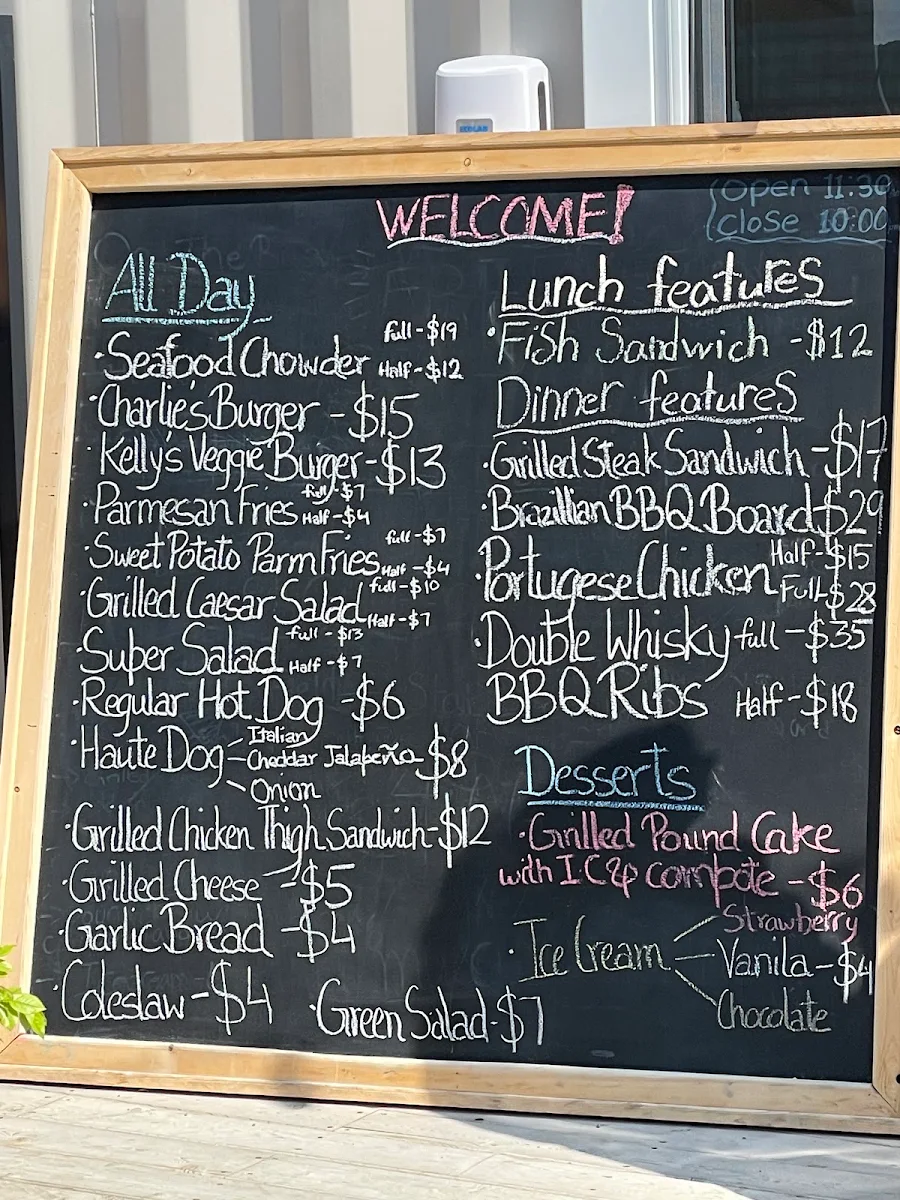 ECOLAB
WELCOME!
Open 11:30
Close 10:00
All Day
·Seafood Chowder full-$19 Half-$12
·Charlie's Burger -$15
·Kelly's Veggie Burger-$13
·Parmesan Fries full-$7 Half-$4
·Sweet Potato Parm Fries full-$7 Half-$4
·Grilled Caesar Salad full-$10 Half-$7
·Super Salad full-$13 Half-$7
·Regular Hot Dog -$6
·Haute Dog Italian
Cheddar Jalapeño $8
Onion
·Grilled Chicken Thigh Sandwich-$12
·Grilled Cheese -$5
·Garlic Bread -$4
·Coleslaw-$4 ·Green Salad-$7
Lunch features
·Fish Sandwich -$12
Dinner features
·Grilled Steak Sandwich-$17
·Brazillian BBQ Board $29
·Portugese Chicken Half-$15 Full-$28
·Double Whisky full-$35
BBQ Ribs Half-$18
Desserts
·Grilled Pound Cake
with I.C & compote -$6
·Ice Cream Strawberry
Vanila-$4
Chocolate